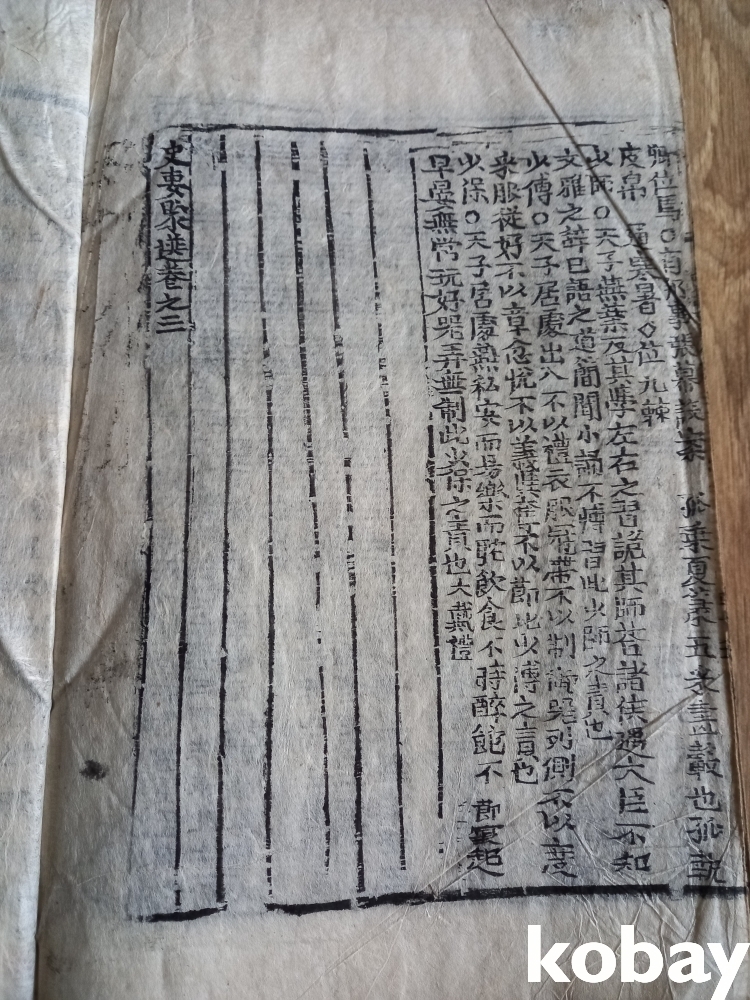 卿位焉○ 孤乗夏篆五采畫轂也孤執
皮帛 ○位九棘
少師○天子燕業反其學左右之習詭其師答諸侯遇大臣不知
文雅之辞已語之道簡聞小誦不博習此少師之責也
少傅○天子居處出入不以禮衣服冠帶不以制御器列側不以度
采服從好不以章忿悅不以義與奪不以節此少傅之責也
少保○天子居處燕私安而易樂而耽飲食不時醉飽不節寢起
早晏無常玩好器弄無制此少保之責也大戴禮
史要聚選卷之三
kobay